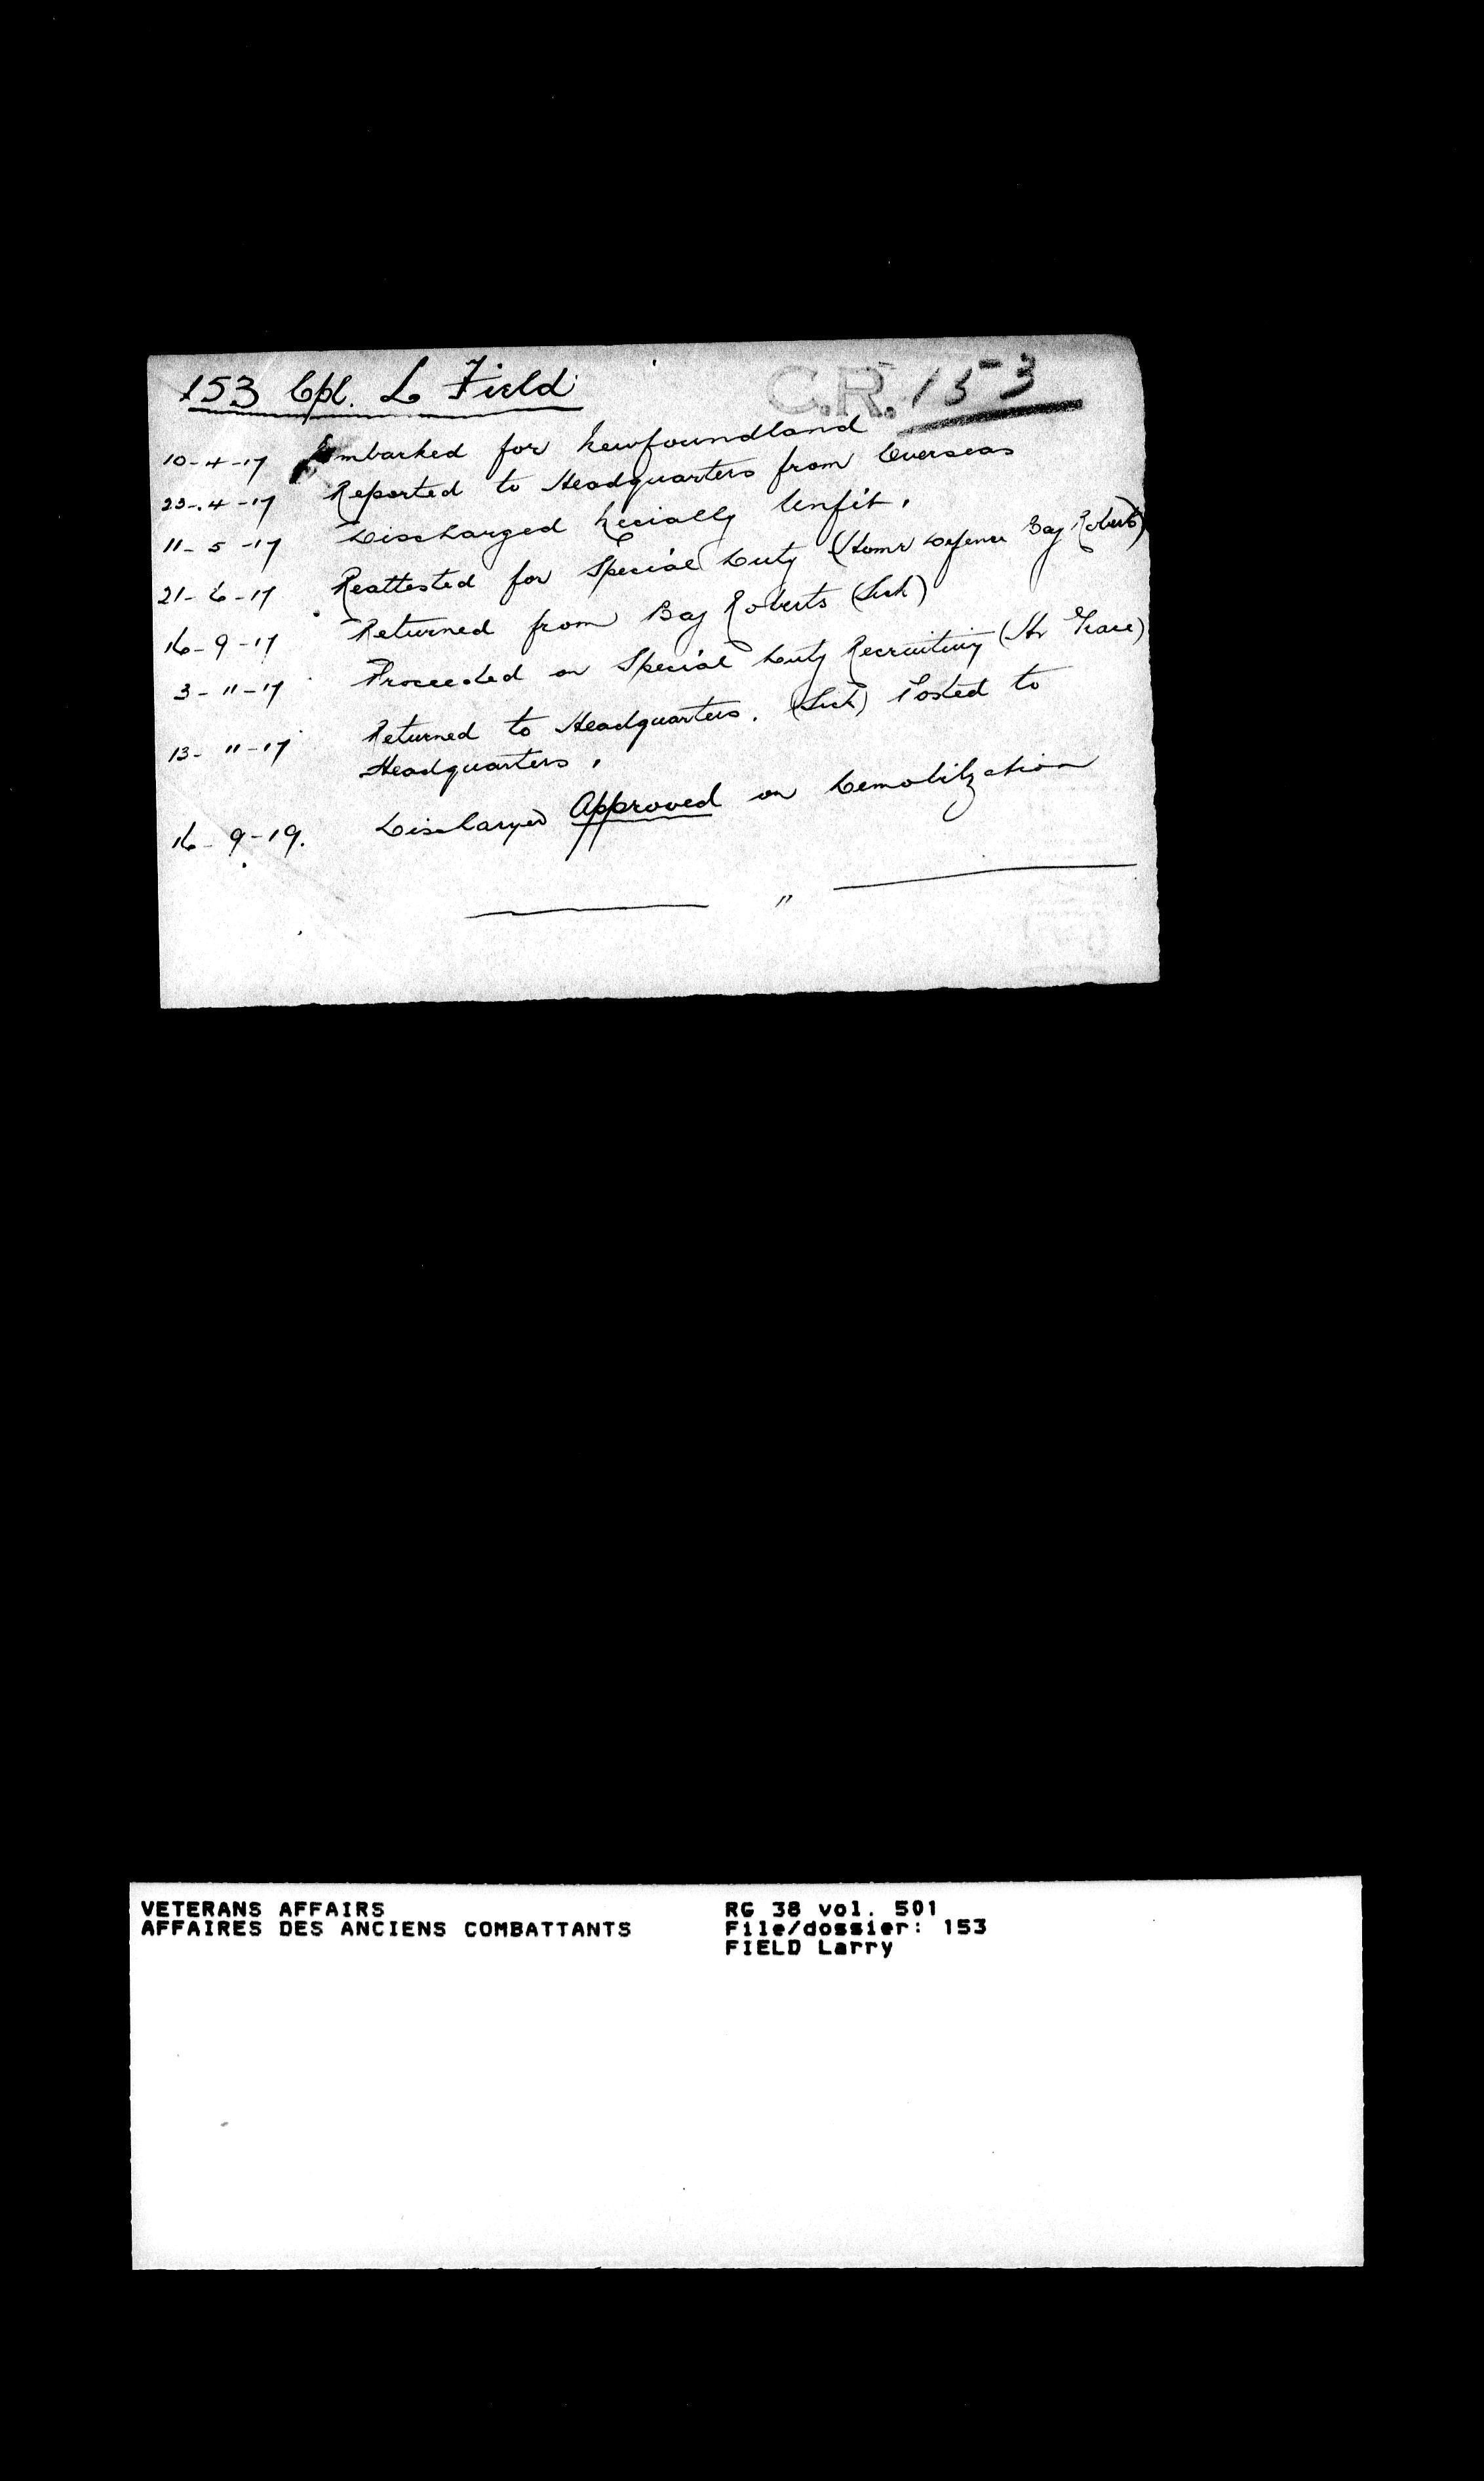 153 Cpl. L Field
C.R. 153
10-4-17 Embarked for Newfoundland
23-4-17 Reported to Headquarters from Overseas
11-5-17 Discharged Unfit.
21-6-17 Reattested for Special Duty (Home Defence Bay Roberts)
16-9-17 Returned from Bay Roberts (Sick)
3-11-17 Proceeded on Special Duty Recruiting (Hr Grace)
13-11-17 Returned to Headquarters. (Sick) Posted to
Headquarters.
16-9-19. Discharged Approved on Demobilization
"
VETERANS AFFAIRS
AFFAIRES DES ANCIENS COMBATTANTS
RG 38 vol. 501
File/dossier: 153
FIELD Larry